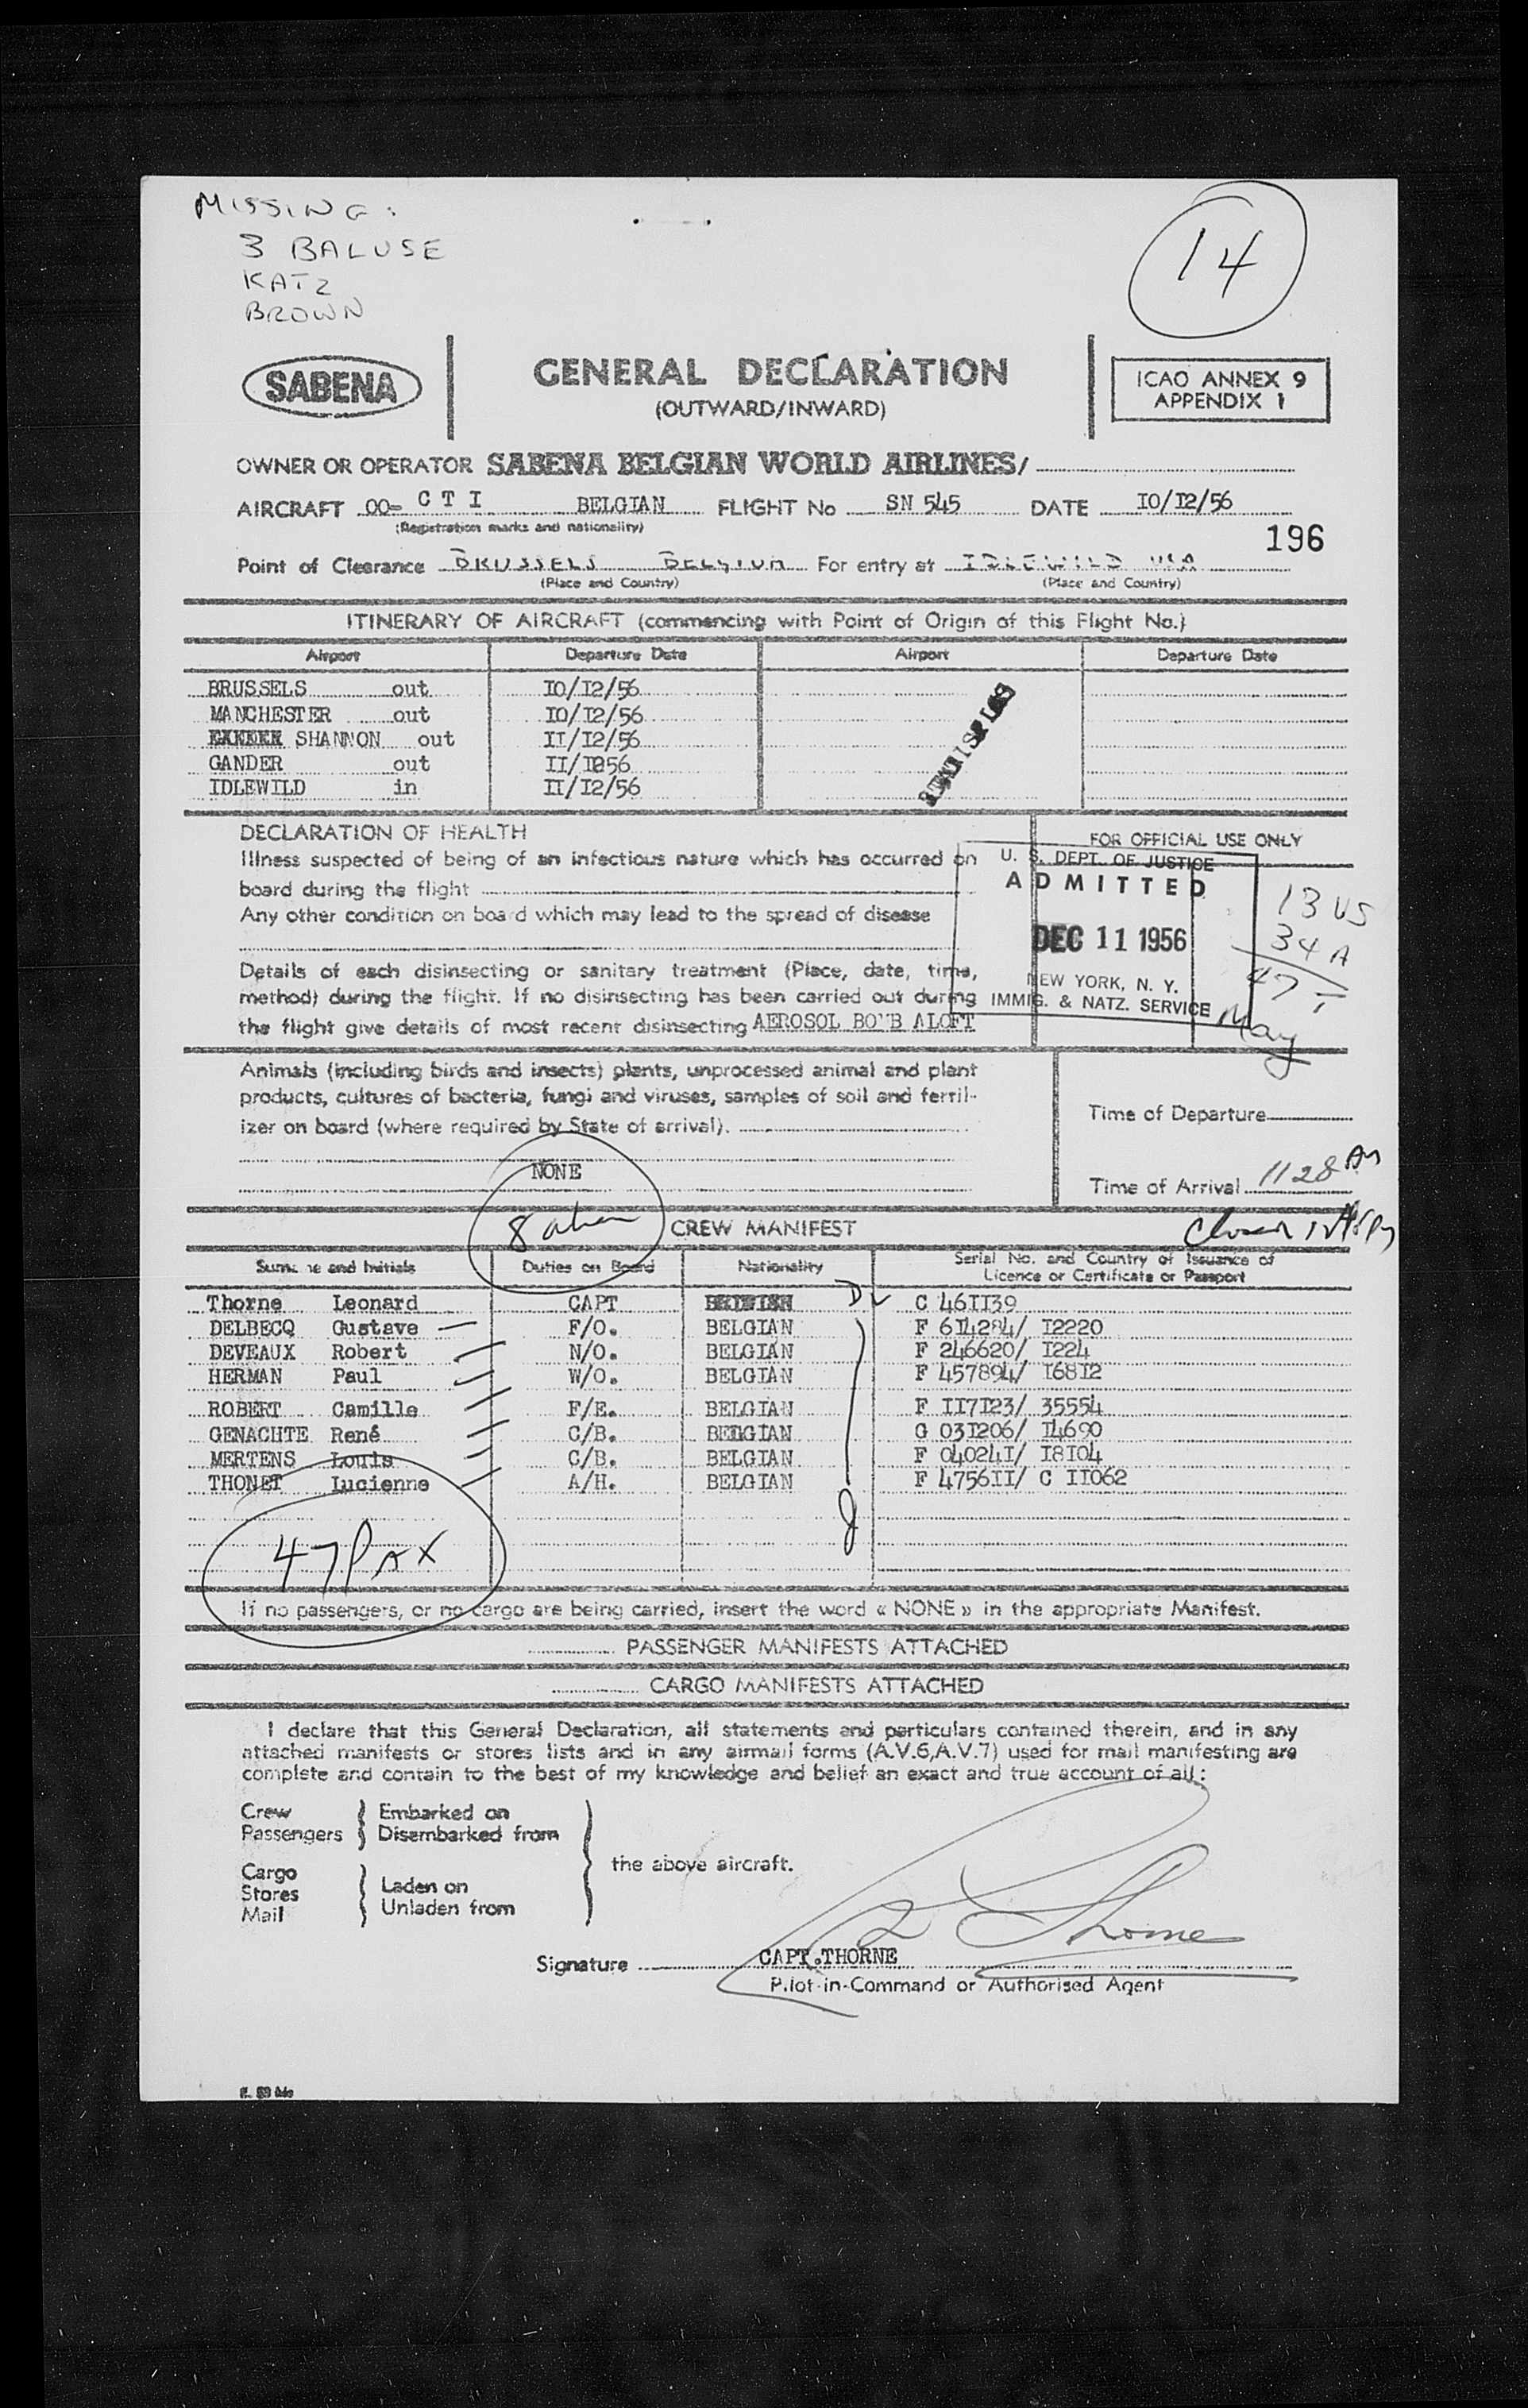 MISSING:
3 BALUSE
KATZ
BROWN
14
SABENA
GENERAL DECLARATION
(OUTWARD/INWARD)
ICAO ANNEX 9
APPENDIX 1
OWNER OR OPERATOR SABENA BELGIAN WORLD AIRLINES/
AIRCRAFT OO- C T I BELGIAN FLIGHT No SN 545 DATE I0/I2/56
(Registration marks and nationality)
196
Point of Clearance BRUSSELS BELGIUM For entry at IDLEWILD USA
(Place and Country) (Place and Country)
ITINERARY OF AIRCRAFT (commencing with Point of Origin of this Flight No.)
Airport Departure Date Airport Departure Date
BRUSSELS out I0/I2/56
MANCHESTER out I0/I2/56
SHANNON out II/I2/56
GANDER out II/I256
IDLEWILD in II/I2/56
DECLARATION OF HEALTH
Illness suspected of being of an infectious nature which has occurred on
board during the flight
Any other condition on board which may lead to the spread of disease
Details of each disinsecting or sanitary treatment (Place, date, time,
method) during the flight. If no disinsecting has been carried out during
the flight give details of most recent disinsecting AEROSOL BOMB ALOFT
FOR OFFICIAL USE ONLY
U. S. DEPT. OF JUSTICE
ADMITTED
DEC 11 1956
NEW YORK, N. Y.
IMMIG. & NATZ. SERVICE
13 US
34 A
47 T
May
Animals (including birds and insects) plants, unprocessed animal and plant
products, cultures of bacteria, fungi and viruses, samples of soil and fertil-
izer on board (where required by State of arrival).
NONE
Time of Departure
Time of Arrival 1128 AM
8
CREW MANIFEST
Surname and Initials Duties on Board Nationality Serial No. and Country of Issuance of
Licence or Certificate or Passport
Thorne Leonard CAPT BRITISH C 46II39
DELBECQ Gustave F/O. BELGIAN F 614284/ I2220
DEVEAUX Robert N/O. BELGIAN F 246620/ I224
HERMAN Paul W/O. BELGIAN F 457894/ I68I2
ROBERT Camille F/E. BELGIAN F II7I23/ 35554
GENACHTE René C/B. BELGIAN G 03I206/ I4690
MERTENS Louis C/B. BELGIAN F 04024I/ I8I04
THONET Lucienne A/H. BELGIAN F 4756II/ C II062
47 PAX
If no passengers, or no cargo are being carried, insert the word « NONE » in the appropriate Manifest.
PASSENGER MANIFESTS ATTACHED
CARGO MANIFESTS ATTACHED
I declare that this General Declaration, all statements and particulars contained therein, and in any
attached manifests or stores lists and in any airmail forms (A.V.6,A.V.7) used for mail manifesting are
complete and contain to the best of my knowledge and belief an exact and true account of all :
Crew
Passengers
Embarked on
Disembarked from
Cargo
Stores
Mail
Laden on
Unladen from
the above aircraft.
L Thorne
Signature CAPT.THORNE
Pilot-in-Command or Authorised Agent